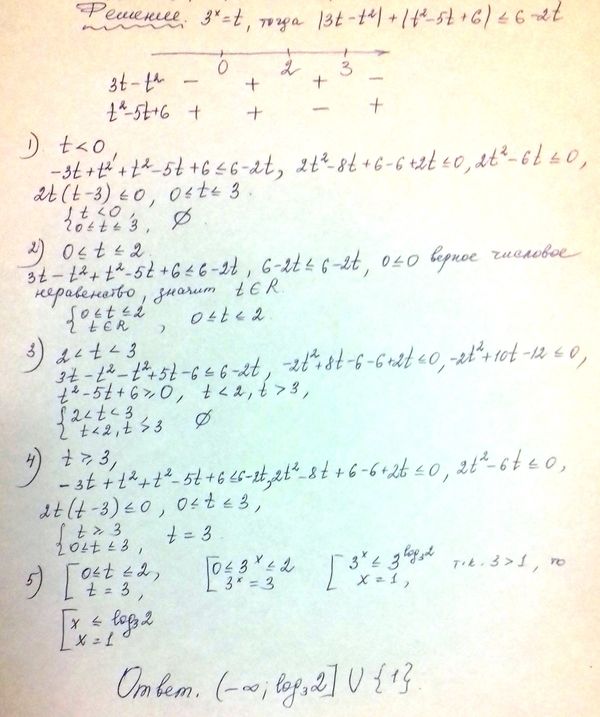 Решение. 3ˣ = t, тогда |3t - t²| + |t² - 5t + 6| ≤ 6 - 2t
0 2 3
3t - t² - + + -
t² - 5t + 6 + + - +
1) t < 0,
-3t + t² + t² - 5t + 6 ≤ 6 - 2t, 2t² - 8t + 6 - 6 + 2t ≤ 0, 2t² - 6t ≤ 0,
2t(t - 3) ≤ 0, 0 ≤ t ≤ 3.
{ t < 0,
{ 0 ≤ t ≤ 3, ∅
2) 0 ≤ t ≤ 2
3t - t² + t² - 5t + 6 ≤ 6 - 2t, 6 - 2t ≤ 6 - 2t, 0 ≤ 0 верное числовое
неравенство, значит t ∈ R.
{ 0 ≤ t ≤ 2
{ t ∈ R , 0 ≤ t ≤ 2.
3) 2 < t < 3
3t - t² - t² + 5t - 6 ≤ 6 - 2t, -2t² + 8t - 6 - 6 + 2t ≤ 0, -2t² + 10t - 12 ≤ 0,
t² - 5t + 6 ≥ 0, t < 2, t > 3,
{ 2 < t < 3
{ t < 2, t > 3 ∅
4) t ≥ 3,
-3t + t² + t² - 5t + 6 ≤ 6 - 2t, 2t² - 8t + 6 - 6 + 2t ≤ 0, 2t² - 6t ≤ 0,
2t(t - 3) ≤ 0, 0 ≤ t ≤ 3,
{ t ≥ 3
{ 0 ≤ t ≤ 3, t = 3.
5) [ 0 ≤ t ≤ 2, [ 0 ≤ 3ˣ ≤ 2 [ 3ˣ ≤ 3^log₃2 т.к. 3 > 1, то
[ t = 3, [ 3ˣ = 3 [ x = 1,
[ x ≤ log₃2
[ x = 1
Ответ. (-∞; log₃2] ∪ {1}.